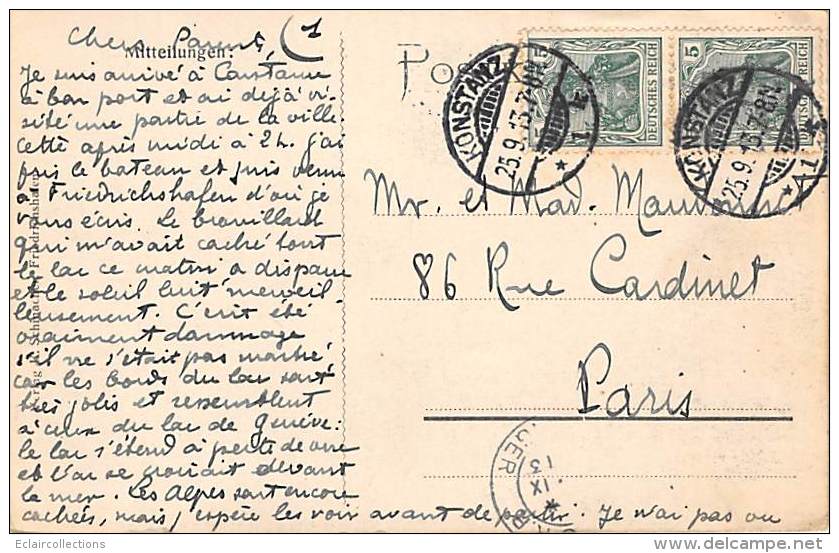 Chers Parents,
1
Mitteilungen:
Je suis arrivé à Constance
à bon port et ai déjà vi-
sité une partie de la ville.
Cette après midi à 2h. j'ai
pris le bateau et suis venu
à Friedrichshafen d'où je
vous écris. Le brouillard
qui m'avait caché tout
le lac ce matin a disparu
et le soleil luit merveil-
leusement. C'eut été
vraiment dommage
s'il ne s'était pas montré
car les bords du lac sont
très jolis et ressemblent
à ceux du lac de Genève:
le lac s'étend à perte de vue
et l'on se croirait devant
la mer. Les Alpes sont encore
cachées, mais j'espère les voir avant de partir. Je n'ai pas eu
Pos
DEUTSCHES REICH
5
DEUTSCHES REICH
5
KONSTANZ
25.9.13.7-8N.
* 1 *
KONSTANZ
25.9.13.7-8N.
* 1
Mr. et Mad.
86 Rue Cardinet
Paris
GER
13
IX
Friedrichshafen
Eclaircollections